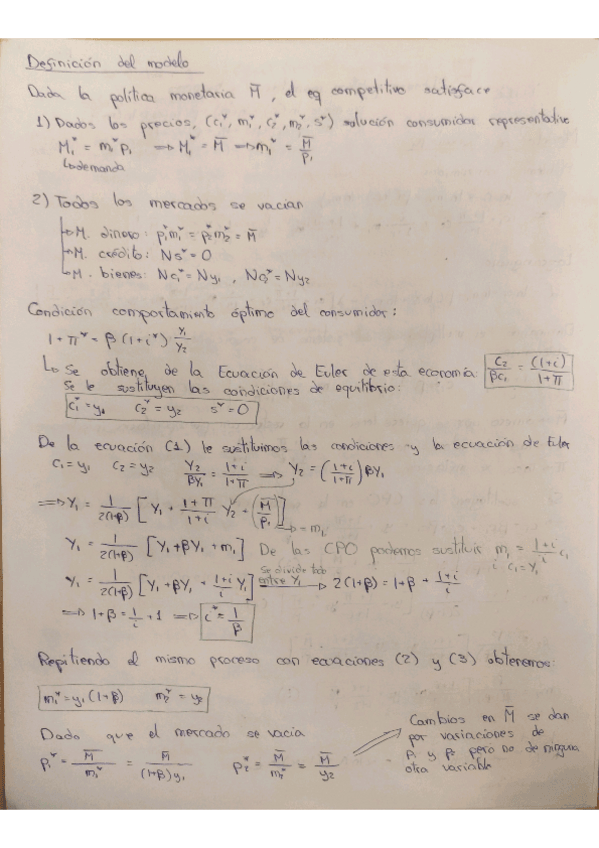 Definición del modelo
Dada la política monetaria M̄, el eq competitivo satisface
1) Dados los precios, (c₁*, m₁*, c₂*, m₂*, s*) solución consumidor representativo
M₁* = m₁* p₁ ⟹ M₁* = M̄ ⟹ m₁* = M̄/p₁
↳ demanda
2) Todos los mercados se vacían
↳ M. dinero: p₁*m₁* = p₂*m₂* = M̄
↳ M. crédito: Ns* = 0
↳ M. bienes: Nc₁* = Ny₁ , Nc₂* = Ny₂
Condición comportamiento óptimo del consumidor:
1+π* = β(1+i*) · y₁/y₂
↳ Se obtiene, de la Ecuación de Euler de esta economía: C₂/βc₁ = (1+i)/1+π
Se le sustituyen las condiciones de equilibrio:
c₁* = y₁ c₂* = y₂ s* = 0
De la ecuación (1) le sustituimos las condiciones y la ecuación de Euler
C₁ = y₁ C₂ = y₂ Y₂/βY₁ = 1+i/1+π ⟹ Y₂ = (1+i/1+π) βY₁
⟹ Y₁ = 1/2(1+β) [Y₁ + 1+π/1+i Y₂ + (M̄/p₁)]
→ = m₁
Y₁ = 1/2(1+β) [Y₁ + βY₁ + m₁] De las CPO podemos sustituir m₁ = 1+i/i c₁
c₁ = Y₁
Y₁ = 1/2(1+β) [Y₁ + βY₁ + 1+i/i Y₁] Se divide todo entre Y₁ → 2(1+β) = 1+β + 1+i/i
⟹ 1+β = 1/i + 1 ⟹ i* = 1/β
Repitiendo el mismo proceso con ecuaciones (2) y (3) obtenemos:
m₁* = y₁(1+β) m₂* = y₂
Dado que el mercado se vacía
p₁* = M̄/m₁* = M̄/(1+β)y₁ p₂* = M̄/m₂* = M̄/y₂
Cambios en M̄ se dan
por variaciones de
p₁ y p₂ pero no de ninguna
otra variable